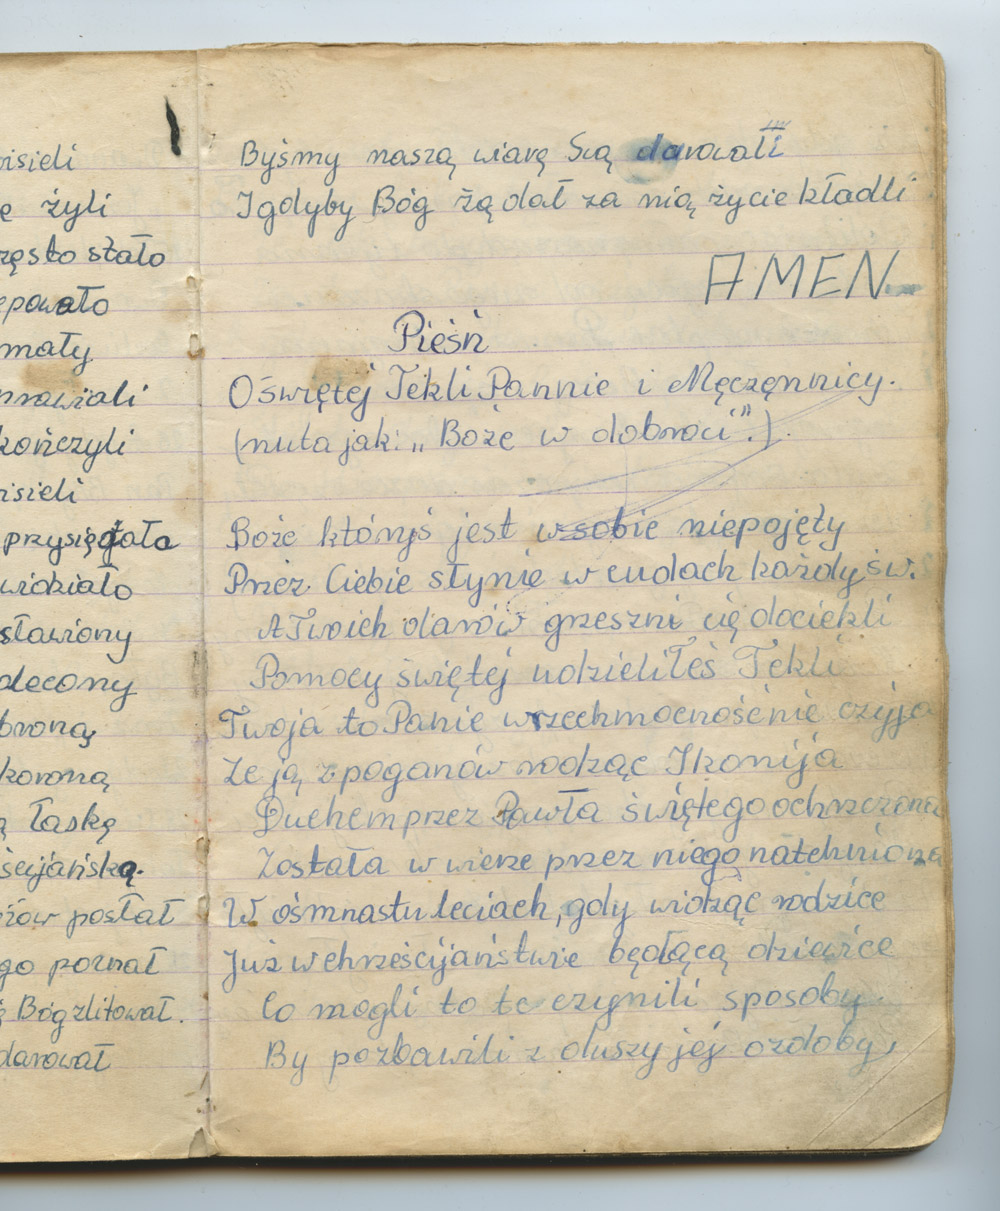 isieli
ę żyli
zęsto stało
epowało
mały
mawiali
kończyli
isieli
przysięgała
widziało
sławiony
decony
broną
koroną
ą łaskę
ścijańską.
rów posłał
go poznał
ę Bóg zlitował.
darował
Byśmy naszą wiarę Swą darowali
I gdyby Bóg żądał za nią życie kładli
AMEN.
Pieśń
O świętej Tekli Pannie i Męczennicy.
(nuta jak: „Boże w dobroci".).
Boże któryś jest w sobie niepojęty
Przez Ciebie słynie w cudach każdy św.
A Twoich darów grzeszni cię dociekli
Pomocy świętej udzieliłeś Tekli
Twoja to Panie wszechmocność nie czyja
Że ją z poganów rodząc Ikonija
Duchem przez Pawła świętego ochrzczona
Została w wierze przez niego natchniona
W ośmnastu leciach, gdy widząc rodzice
Już w chrześcijaństwie będącą dziewice
Co mogli to te czynili sposoby
By pozbawili z duszy jej ozdoby,